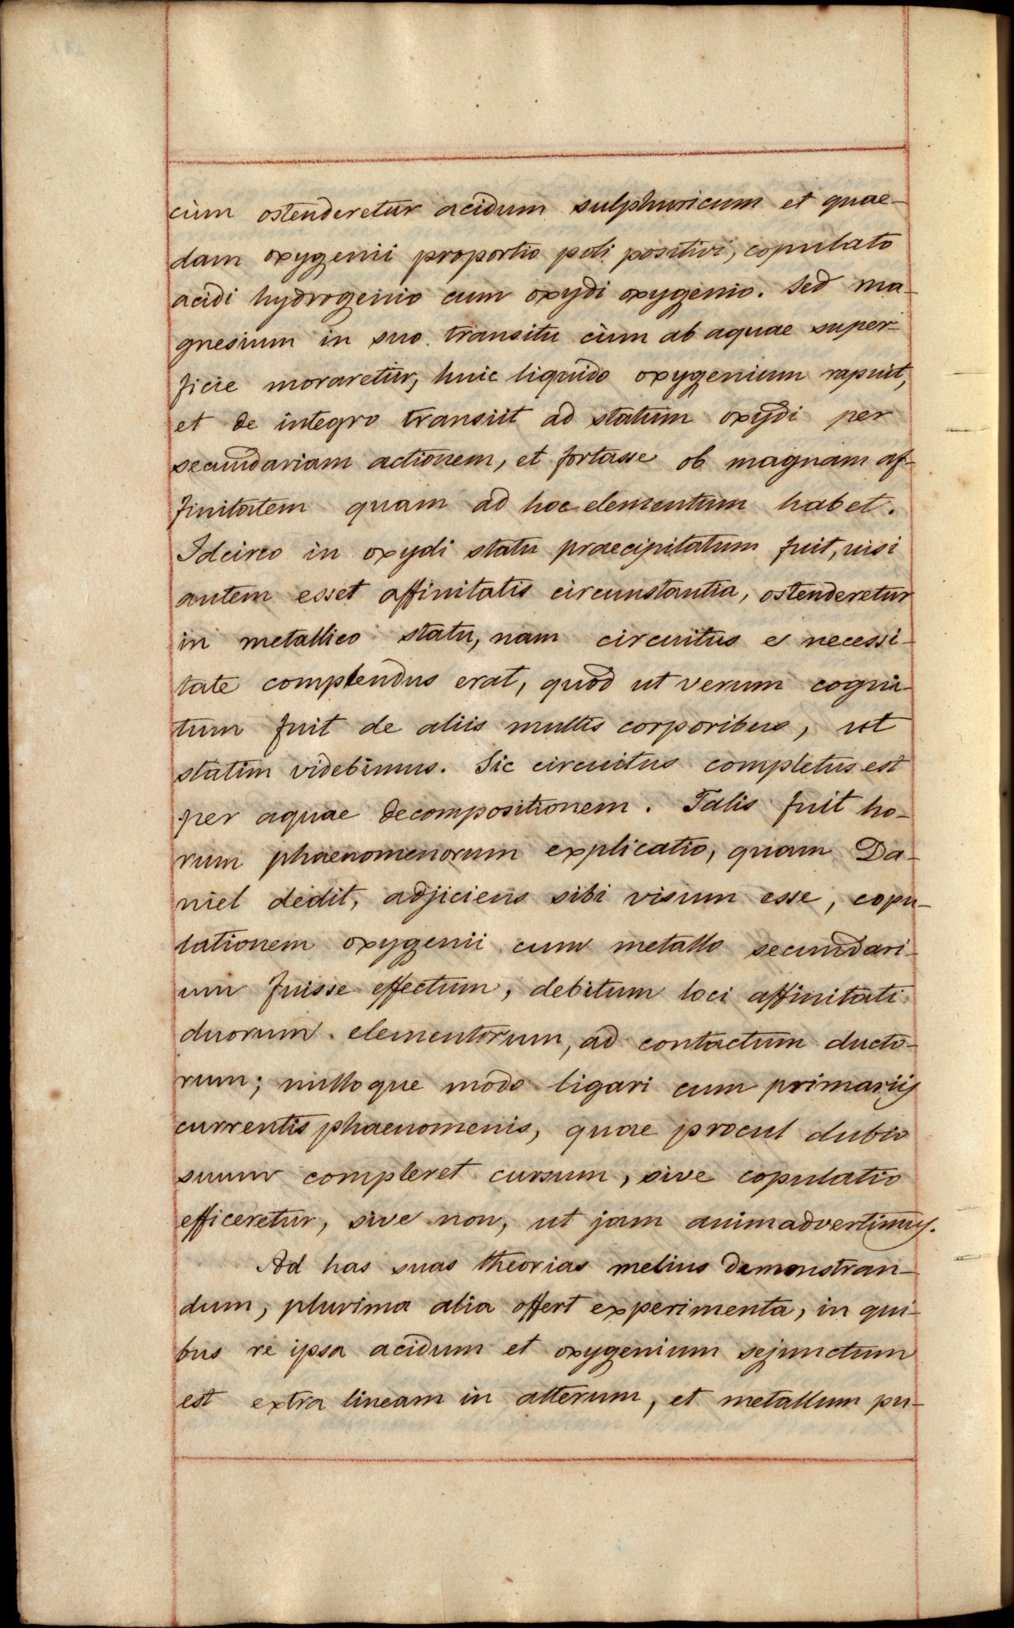 cùm ostenderetur acidum sulphuricum et quae-
dam oxygenii proportio poli positivi, copulato
acidi hydrogenio cum oxydi oxygenio. Sed ma-
gnesium in suo transitu cùm ab aquae super-
ficie moraretur, huic liquido oxygenium rapuit,
et de integro transiit ad statum oxydi per
secundariam actionem, et fortasse ob magnam af-
finitatem quam ad hoc elementum habet.
Idcirco in oxydi statu praecipitatum fuit, nisi
autem esset affinitatis circumstantia, ostenderetur
in metallico statu, nam circuitus e necessi-
tate complendus erat, quod ut verum cogni-
tum fuit de aliis multis corporibus, ut
statim videbimus. Sic circuitus completus est
per aquae decompositionem. Talis fuit ho-
rum phaenomenorum explicatio, quam Da-
niel dedit, adjiciens sibi visum esse, copu-
lationem oxygenii cum metallo secundari-
um fuisse effectum, debitum loci affinitati
duorum elementorum, ad contactum ducto-
rum; nulloque modo ligari cum primariis
currentis phaenomenis, quae procul dubio
suum compleret cursum, sive copulatio
efficeretur, sive non, ut jam animadvertimus.
Ad has suas theorias melius demonstran-
dum, plurima alia offert experimenta, in qui-
bus re ipsa acidum et oxygenium sejunctum
est extra lineam in alterum, et metallum pu-